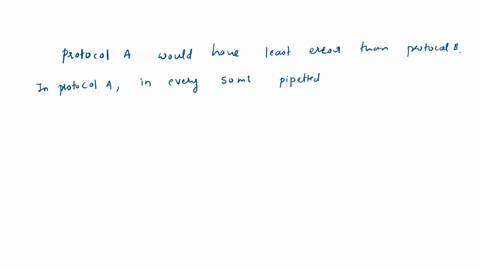 Protocol A would have least error than protocol B.
In protocol A, in every 50ml pipetted